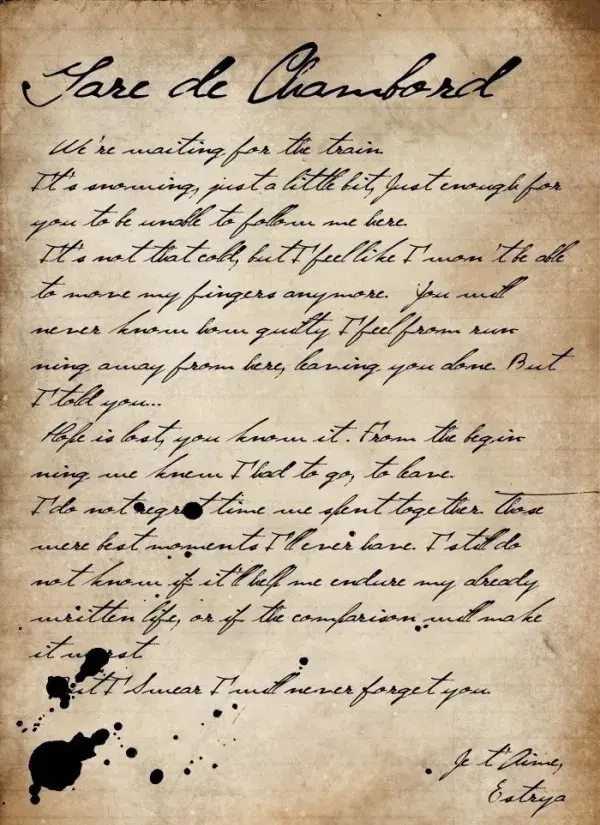 Gare de Chambord
We're waiting for the train.
It's snowing, just a little bit, Just enough for
you to be unable to follow me here.
It's not that cold, but I feel like I won't be able
to move my fingers anymore. You will
never know how guilty I feel from run-
ning away from here, leaving you alone. But
I told you...
Hope is lost, you know it. From the begin-
ning we knew I had to go, to leave.
I do not regret time we spent together. Those
were best moments I'll ever have. I still do
not know if it'll help me endure my already
written life, or if the comparison will make
it worst.
But I Swear I will never forget you.
Je t'Aime,
Estrya